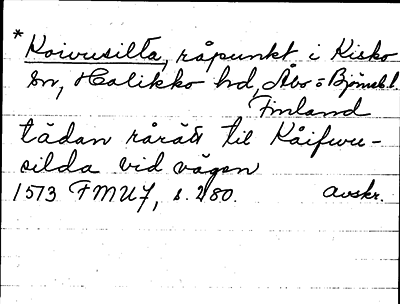 *Koivusilta, råpunkt i Kisko
sn, Halikko hd, Åbo o Björneb. l.
Finland
tådan rårätt til Kåifwu-
silda vid vägen
1573 FMU 7, s. 280. avskr.